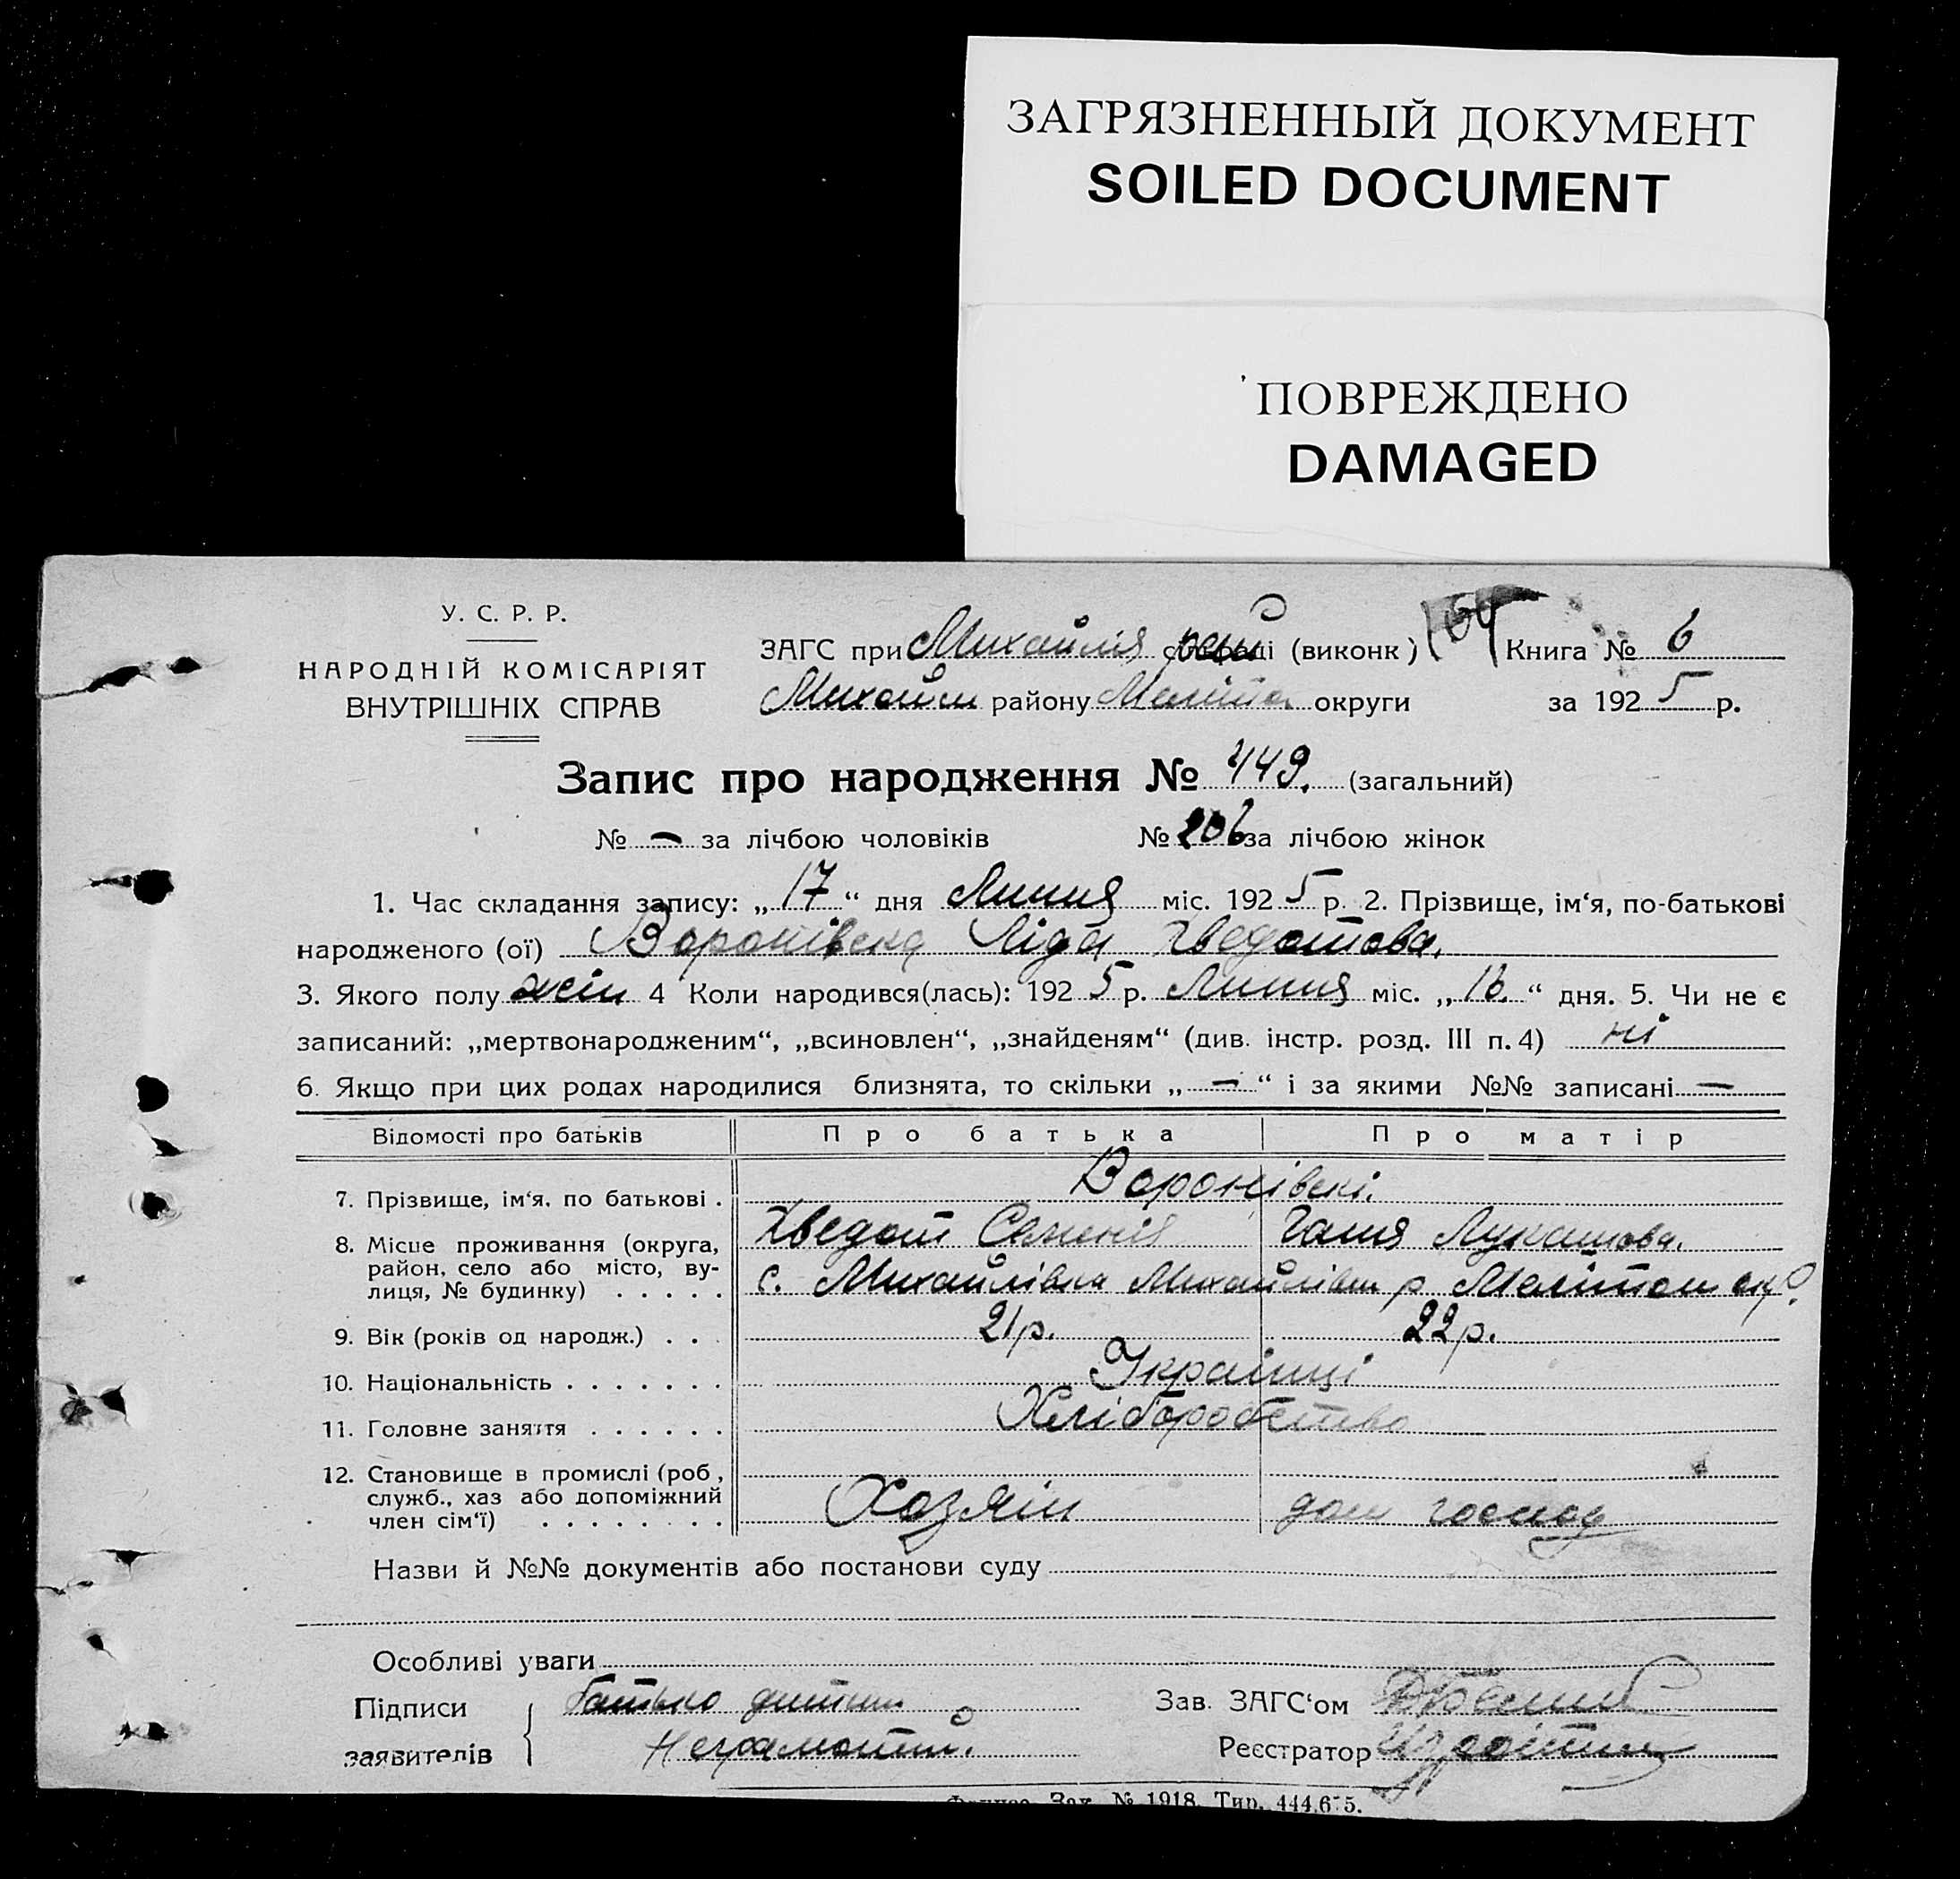 ЗАГРЯЗНЕННЫЙ ДОКУМЕНТ
SOILED DOCUMENT
ПОВРЕЖДЕНО
DAMAGED
У. С. Р. Р.
НАРОДНІЙ КОМІСАРІЯТ
ВНУТРІШНІХ СПРАВ
ЗАГС при Михайлів рай (виконк) 164 Книга № 6
Михайл району Меліто округи за 1925 р.
Запис про народження № 449. (загальний)
№ — за лічбою чоловіків № 206 за лічбою жінок
1. Час складання запису: „17“ дня Липня міс. 1925 р. 2. Прізвище, ім‘я, по-батькові
народженого (ої) Воронівска Ліда Хведотова.
3. Якого полу жін 4 Коли народився(лась): 1925 р. Липня міс. „16.“ дня. 5. Чи не є
записаний: „мертвонародженим“, „всиновлен“, „знайденям“ (див. інстр. розд. III п. 4) ні
6. Якщо при цих родах народилися близнята, то скільки „—“ і за якими №№ записані —
Відомості про батьків Про батька Про матір
7. Прізвище, ім‘я, по батькові . Воронівскі.
Хведот Семенів Ганя Лукашова.
8. Місце проживання (округа,
район, село або місто, ву-
лиця, № будинку) . . . . . с. Михайлівка Михайлівськ р Мелітоп окр.
9. Вік (років од народж.) . . . 21 р. 22 р.
10. Національність . . . . . . . Українці
11. Головне заняття . . . . . . Хліборобство
12. Становище в промислі (роб,
служб., хаз або допоміжний
член сім‘ї) . . . . . . . . Хозяїн дом господ
Назви й №№ документів або постанови суду
Особливі уваги
Підписи батько дитини Зав. ЗАГС‘ом
заявителів Неграмотний. Реєстратор
Зак. № 1918. Тир. 444.675.